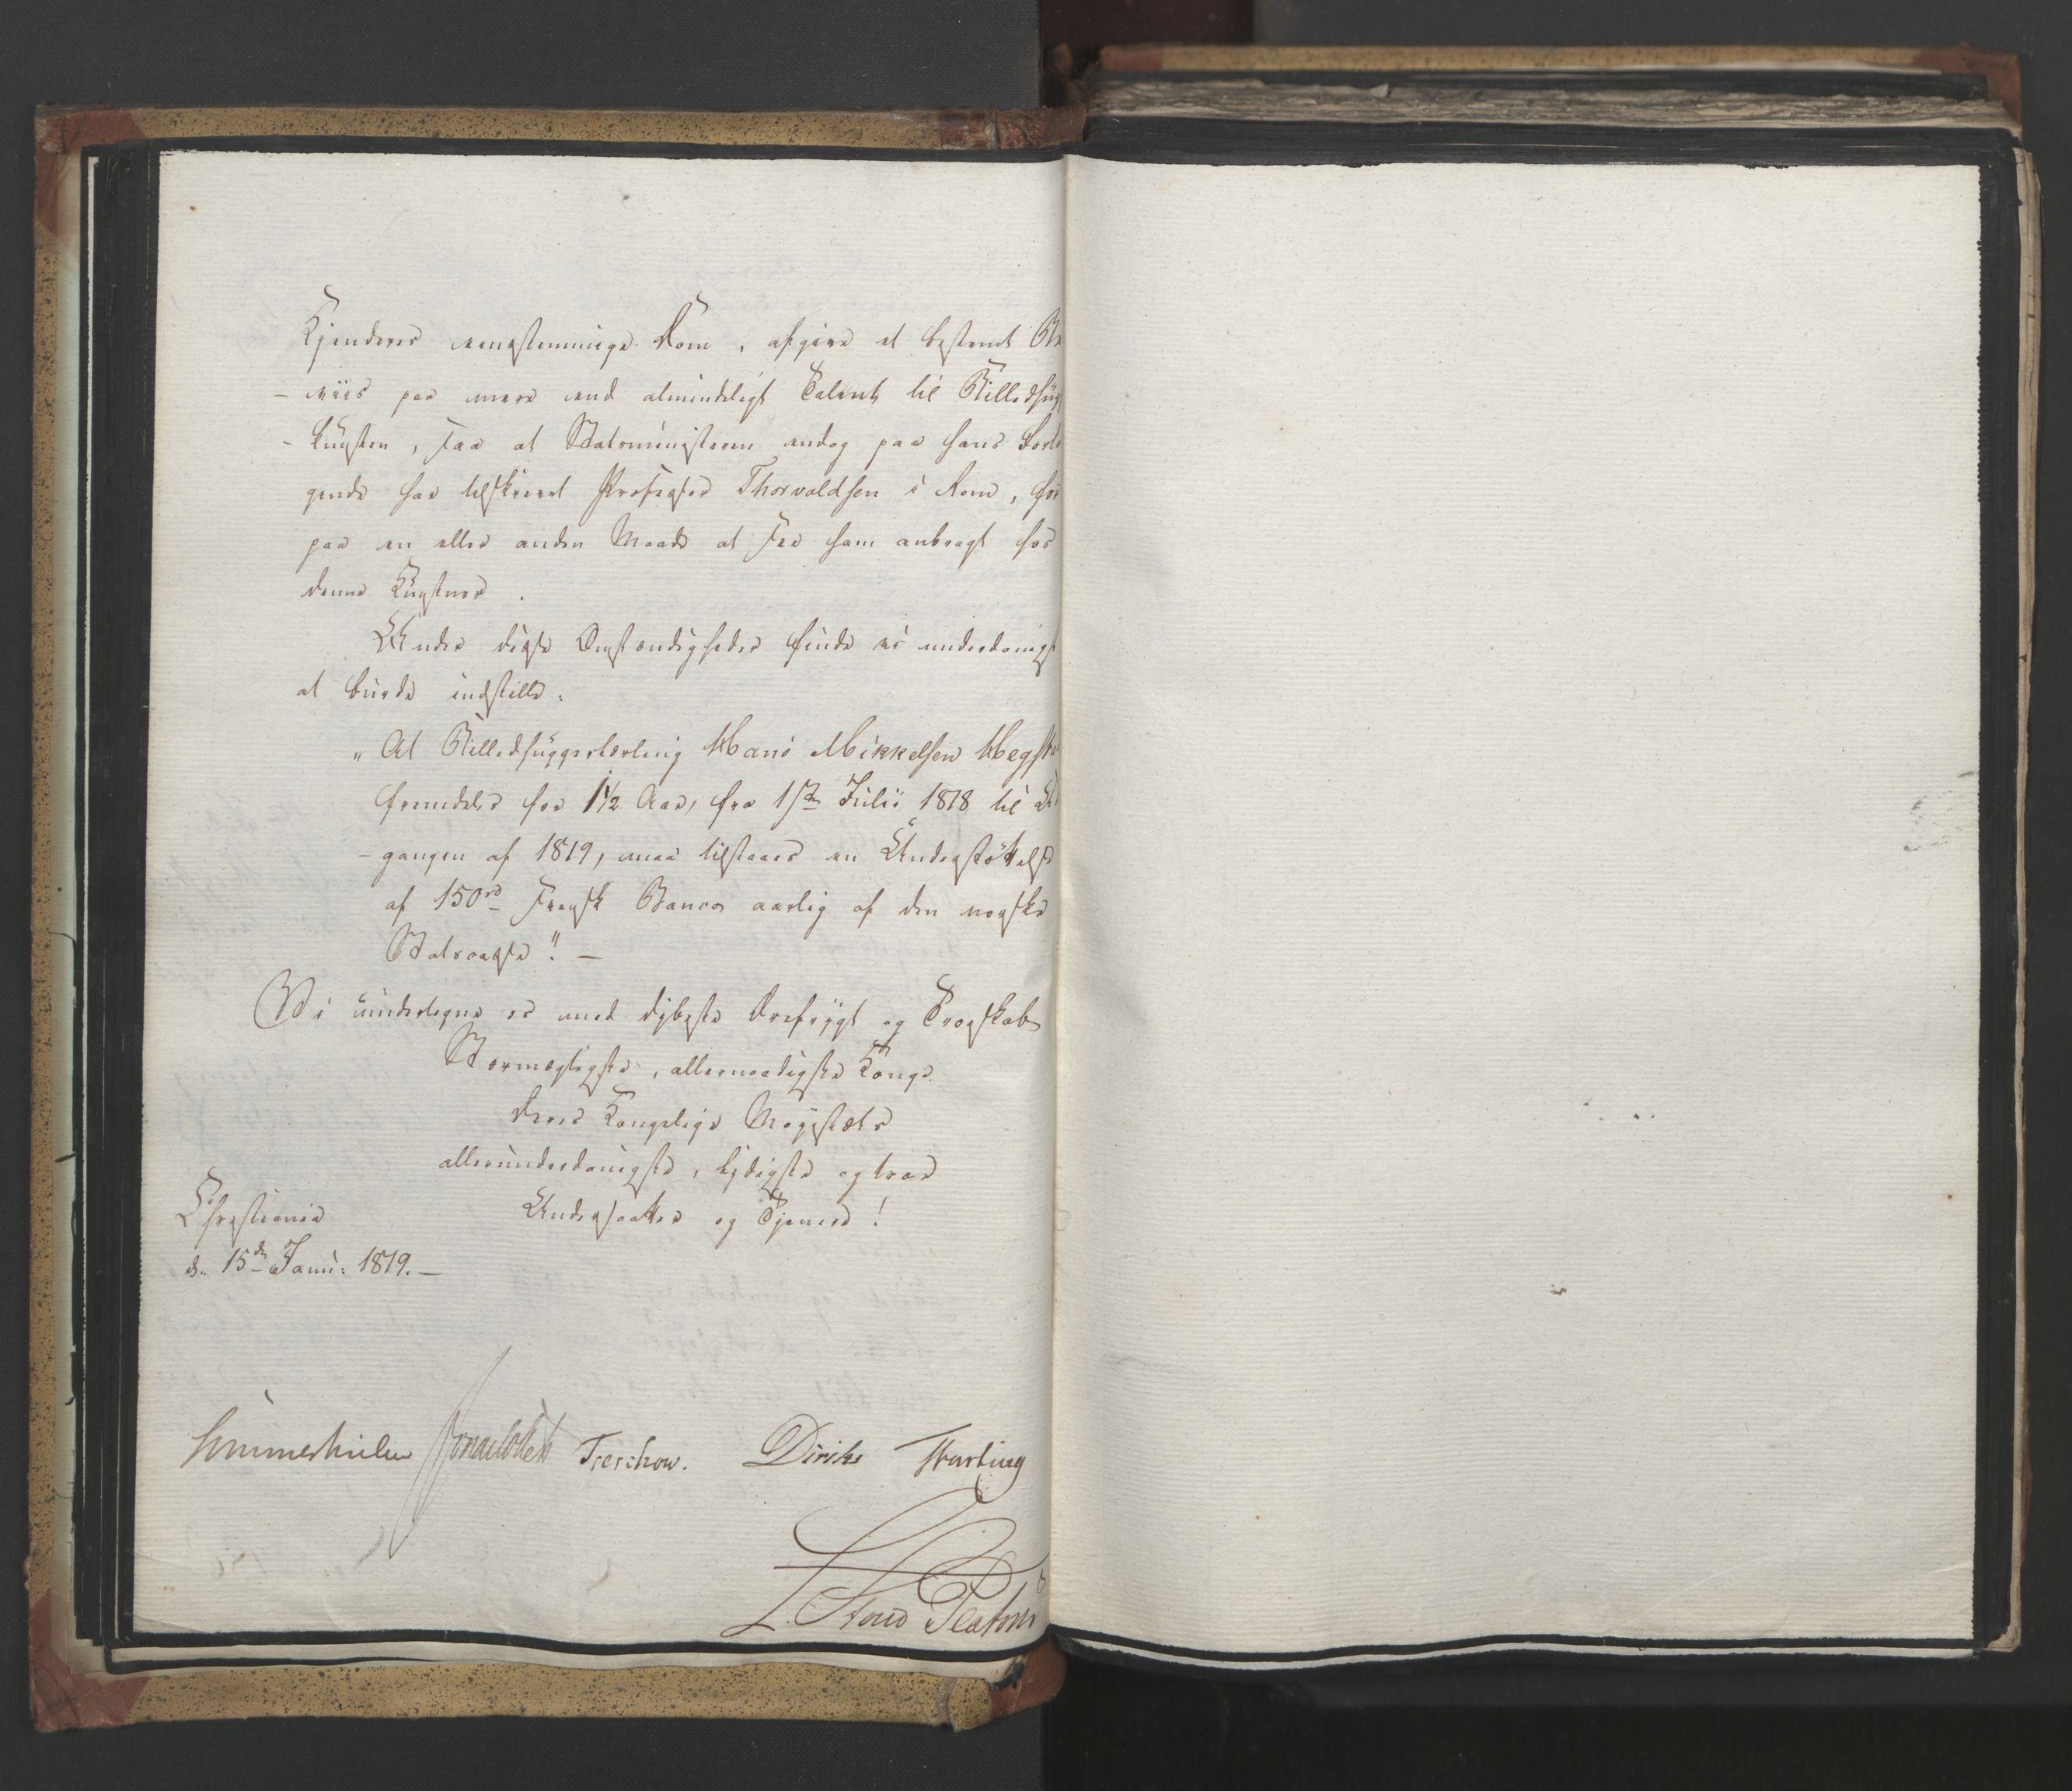 Kjenderes eenstemmige Dom, afgive et bestemt Be
-viis paa mere end almindeligt Talent til Billedhug
-kunsten, saa at Statsministeren endog paa hans Forlan
gende har tilskrevet Professor Thorvaldsen i Rom, for
paa en eller anden Maade at see ham anbragt hos
denne Kunstner.
Under disse Omstændigheder finde vi underdanigst
at burde indstille:
"At Billedhuggerlærling Hans Mikkelsen Hegst
fremdeles for 1½ Aar, fra 1ste Julii 1818 til Ud
-gangen af 1819, maa tilstaaes en Understöttelse
af 150rd Svensk Banco aarlig af den norske
Statscasse". —
Vi undertegne os med dybeste Ærefrygt og Troskab
Stormægtigste, allernaadigste Konge.
Deres Kongelige Majestæts
allerunderdanigste, lydigste og troe
Undersaatter og Tjenere!
Christiania
d. 15de Janu: 1819. —
Sommerhielm Treschow. Diriks Fasting
L. Stoud Platou